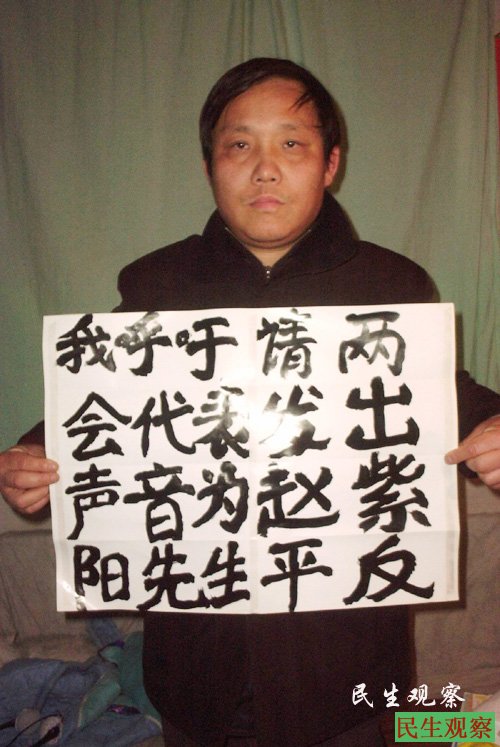 我呼吁请两
会代表发出
声音为赵紫
阳先生平反
民生观察
民生观察